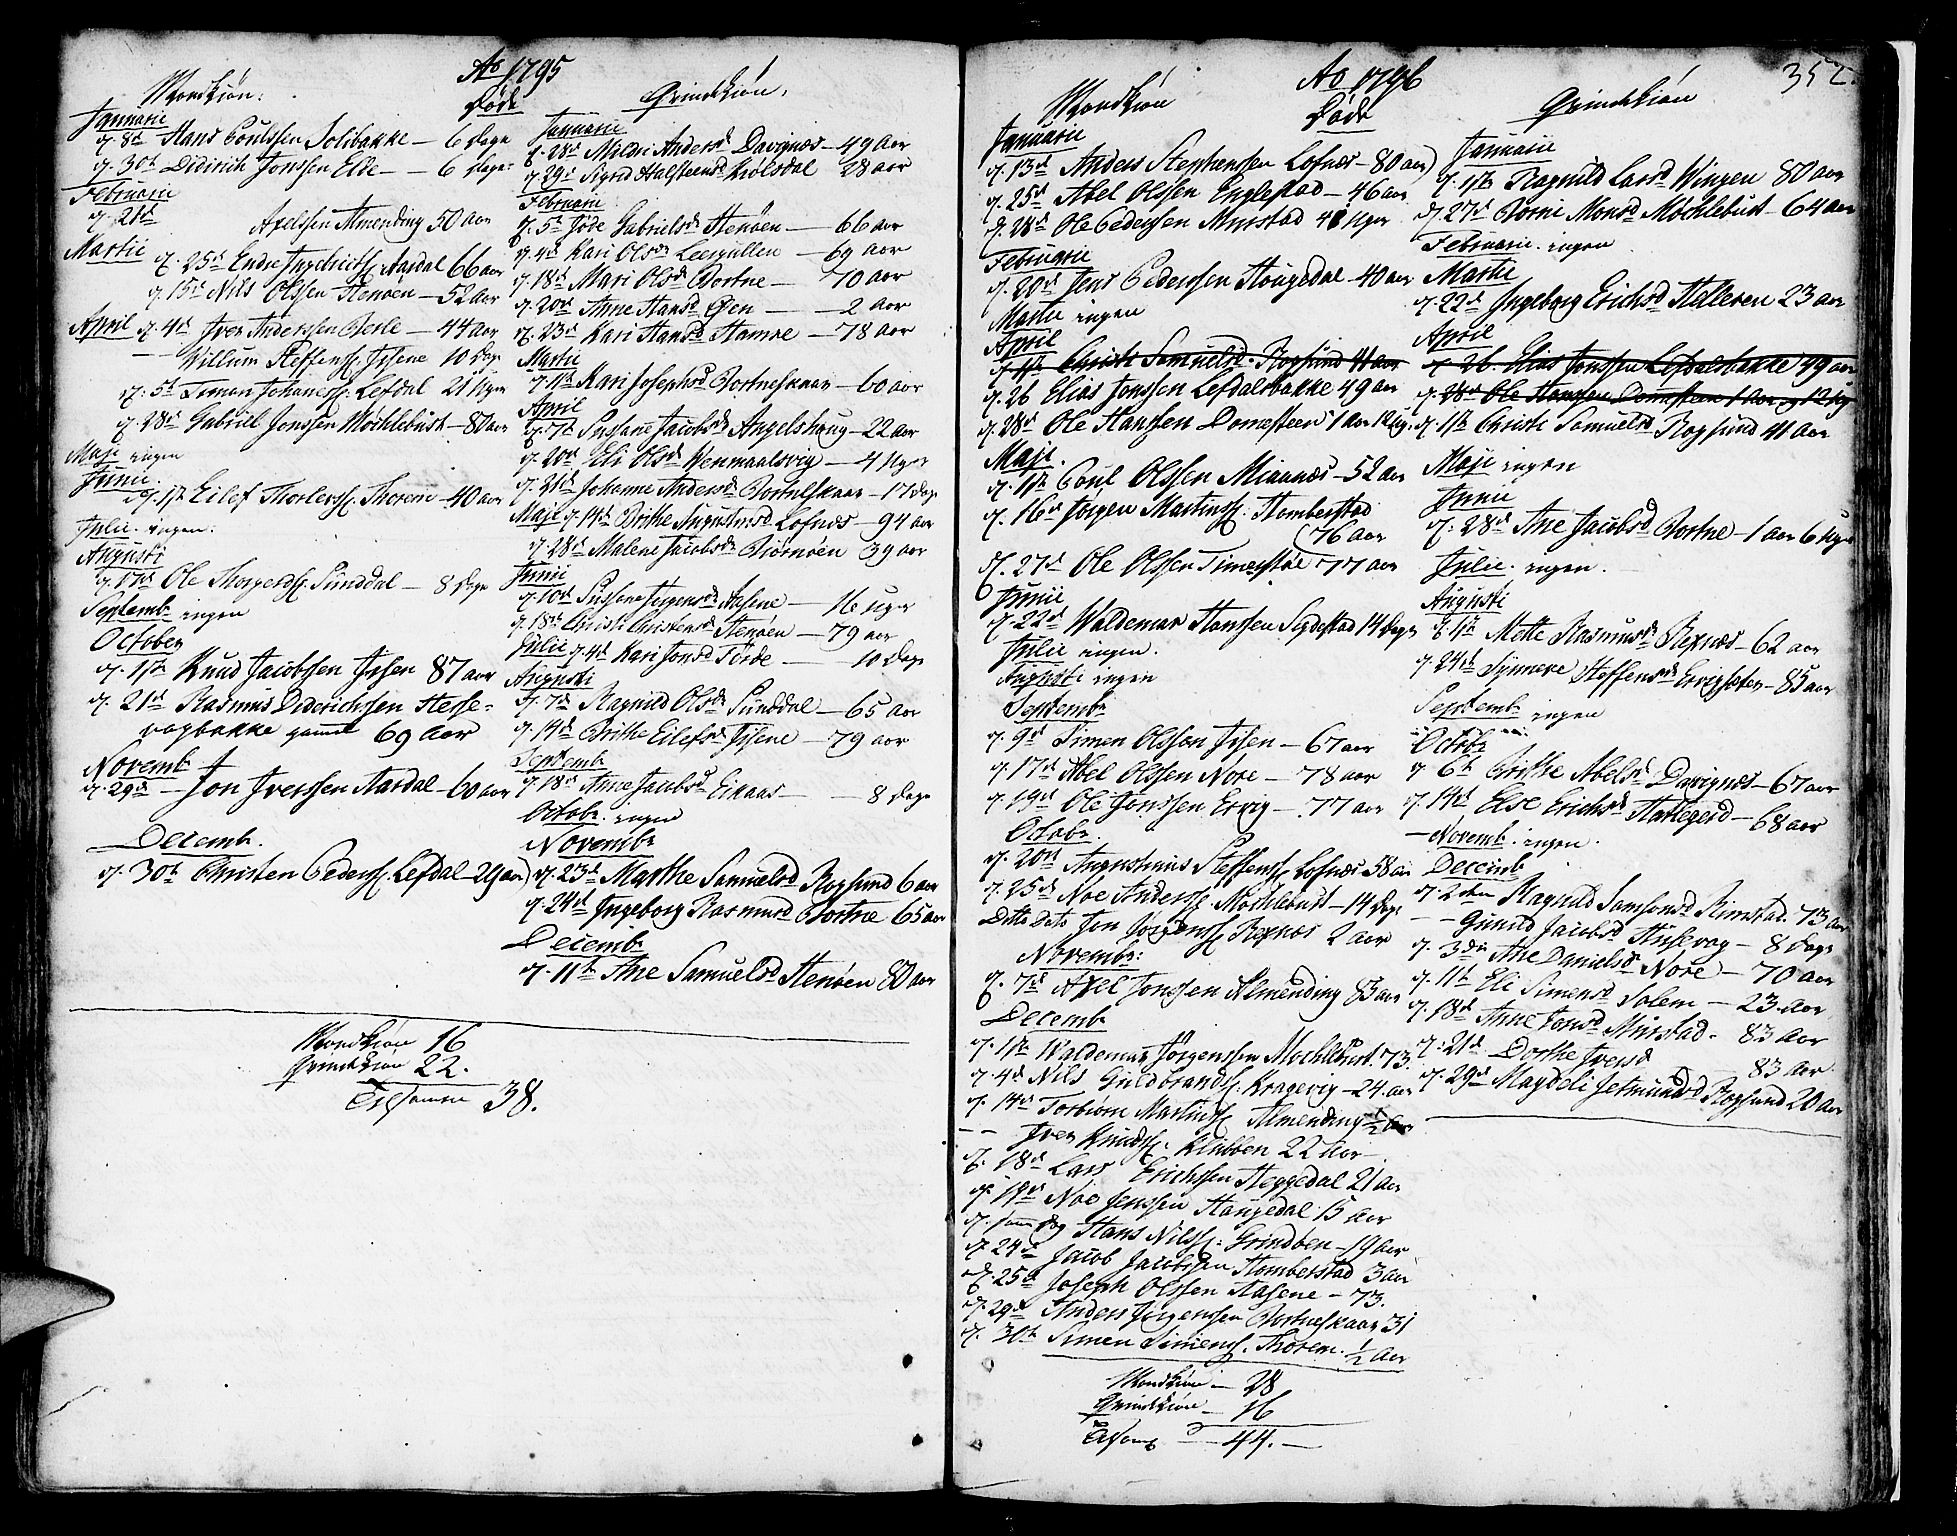 Ao 1795
Døde
Mandkiøn:
Januarie
d. 8de Hans Poulssen Solibakke — 6 Dage
d. 30te Diderich Jonssen Elde — 6 Dage
Februarie
d. 21de Axelssen Almending 50 aar
Martii d. 25de Endre Aardal 66 aar
d. 15de Nils Olssen Henøen — 52 aar
April d. 4de Iver Anderssen Berle — 44 aar
— Willum Steffens. Jisene 10 Dage
d. 5te Johaness. Lefdal 21 Uger
d. 28de Gabriel Jonssen Møchlebust — 80 aar
Maji ingen
Junii
d. 1te Eilef Thorlevss. Thorem 40 aar
Julii ingen.
Augusti
d. 17de Ole Thorgerss. Sunddal — 8 Dage
Septembr ingen
October
d. 1te Knud Jacobssen Jissen 87 aar
d. 21de Rasmus Diderichssen Hesse-
vagbakke gaml 69 Aar
Novemb
d. 29de — Jon Iverssen Aardal — 60 aar
Decemb.
d. 30te Christen Pederss. Lefdal 29 aar
Qvindekiøn
Januarie
d. 28de Mildri Andersd Davignæs — 49 Aar
d. 29de Sigrid Halsteensd Kiølsdal 28 aar
Februarii
d. 5te Jøde Gabrielsd Henøen — 66 aar
d. 4de Kari Olsd Leergullen — 69 aar
d. 18de Mari Olsd Bortne — 70 aar
d. 20de Anne Hansd Øen — 2 aar
d. 23de Kari Hansd Hamre — 78 aar
Martii
d. 11te Kari Josephsd Bortneskaar — 60 aar
April
d. 7de Susane Jacobsd Angelshoug — 22 aar
d. 20de Eli Olsd Wenmaalsvig — 4 Uger
d. 21de Johanne Andersd Bortneskaar — 17 Dage
Maji d. 14de Brithe Augustinsd Lofnæs — 94 aar
d. 28de Malene Jacobsd Biørnøen 39 aar
Junii
d. 10de Susane Jørgensd Aasene — 16 uger
d. 18de Christi Christensd Henøen — 79 aar
Julii d. 4de Kari Jonsd Førde — 10 Dage
Augusti
d. 7de Ragnild Olsd Sunddal — 65 aar
d. 14de Brithe Eilefsd Jisene — 79 aar
Septembr
d. 18de Anne Jacobsd Eikaas — 8 Dage
Octobr. ingen
Novembr
d. 23de Marthe Samuelsd Rogsund 6 aar
d. 24de Ingeborg Rasmusd Bortne 65 aar
Decembr
d. 11te Ane Samuelsd Henøen 80 aar
Mandkiøn 16
Qvindekiøn 22.
Tilsamen 38.
352.
Ao 1796
Døde
Mandkiøn
Januarii
d. 13de Anders Stephenssen Lofnæs — 80 aar
d. 25de Abel Olssen Englestad — 46 aar
d. 28de Ole Pederssen Myrstad 41 Uger
Februarii
d. 20de Jens Pederssen Hougedal — 40 aar
Martii ingen
April
d. 11te Christi Samuelsd. Rogsund 41 aar
d. 26 Elias Jonssen Lefdalsbakke 49 aar
d. 28de Ole Hanssen Domsteen 1 Aar 12 Ug.
Maji.
d. 11te Poul Olssen Mianæs — 52 aar
d. 16de Jørgen Martinss. Homberstad
(76 aar
d. 27de Ole Olssen Timerstøe 77 aar
Junii
d. 22de Waldemar Hanssen Sigdestad 14 Dage
Julii ingen.
Augusti ingen
Septembr
d. 9de Simen Olssen Jisen — 67 aar
d. 17de Abel Olssen Nore — 78 aar
d. 19de Ole Jonssen Ervig — 77 aar
Octobr.
d. 20de Augustinus Steffenss Lofnæs 58 aar
d. 25de Noe Anderss Møchlebust — 14 Dage
Ditto Dato Jon Jørgenss Rexnæs 2 Aar
Novembr:
d. 7de Axel Jonssen Almending 83 aar
Decembr
d. 1te Waldemar Jørgenssen Mochlebust 73.
d. 4de Nils Guldbrandss. Kragevig — 24. aar
d. 14de Torbiørn Martinss Almending ½ aar
— Iver Knudss. Klubben 22 Aar
d. 18de Lars Erichssen Heggedal 21 aar
d. 19de Noe Jenssen Haugedal 15 Aar
d. sam dag Hans Nilss: Grindøen — 19 aar
d. 24de Jacob Jacobssen Homberstad 3 aar
d. 25de Joseph Olssen Aasene — 73.
d. 29de Anders Jørgenssen Bortneskaar 31
d. 30te Simen Simenss. Thorem. ½ Aar
Mandkiøn — 28
Qvindekiøn — 16
Tilsam — 44. —
Qvindekiøn
Januarii
d. 11te Ragnild Larsd Wingen 80 aar
d. 27de Borni Monsd Møchlebust — 64 aar
Februarii. ingen
Martii
d. 22de Ingeborg Erichsd Helleren 23 aar
April
d. 26. Elias Jonssen Lefdalsbakke 49 aar
d. 28de Ole Hanssen Domsteen 1 Aar og 12 Ug
d. 11te Christi Samuelsd Rogsund 41 Aar
Maji ingen
Junii
d. 28de Ane Jacobsd Bortne — 1 aar 6 Uger
Julii. ingen.
Augusti
d. 1te Mette Rasmusd Rexnæs — 62 aar
d. 24de Synneve Steffensd Ervigsæter — 85 aar
Septemb ingen
Octobr
d. 6te Brithe Abelsd Davignæs — 67 aar
d. 14de Else Erichsd Hattegerd — 68 aar
— Novemb. ingen.
Decembr
d. 2den Ragnild Samsonsd Rimstad. 73 Aar
— Gunild Jacobsd Husevag — 8 Dage
d. 3die Ane Danielsd Nore — 70 aar
d. 11te Eli Simensd Solem — 23. Aar
d. 18de Anne Jonsd Myrstad. 83 Aar
d. 21de Dorthe Iversd — 83 Aar.
d. 29de Magdeli Jetmundsd Rogsund 20 Aar